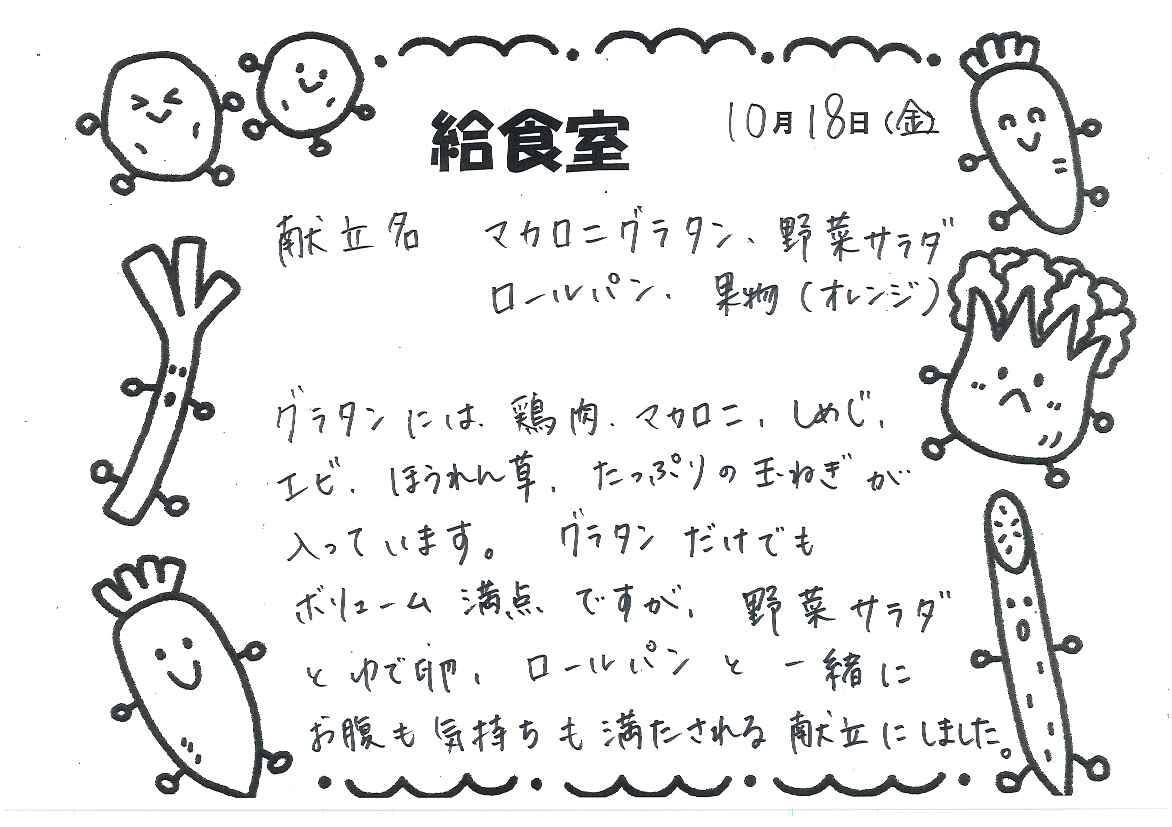 給食室
10月18日(金)
献立名 マカロニグラタン、野菜サラダ
ロールパン、果物(オレンジ)
グラタンには、鶏肉、マカロニ、しめじ、
エビ、ほうれん草、たっぷりの玉ねぎが
入っています。グラタンだけでも
ボリューム満点ですが、野菜サラダ
とゆで卵、ロールパンと一緒に
お腹も気持ちも満たされる献立にしました。